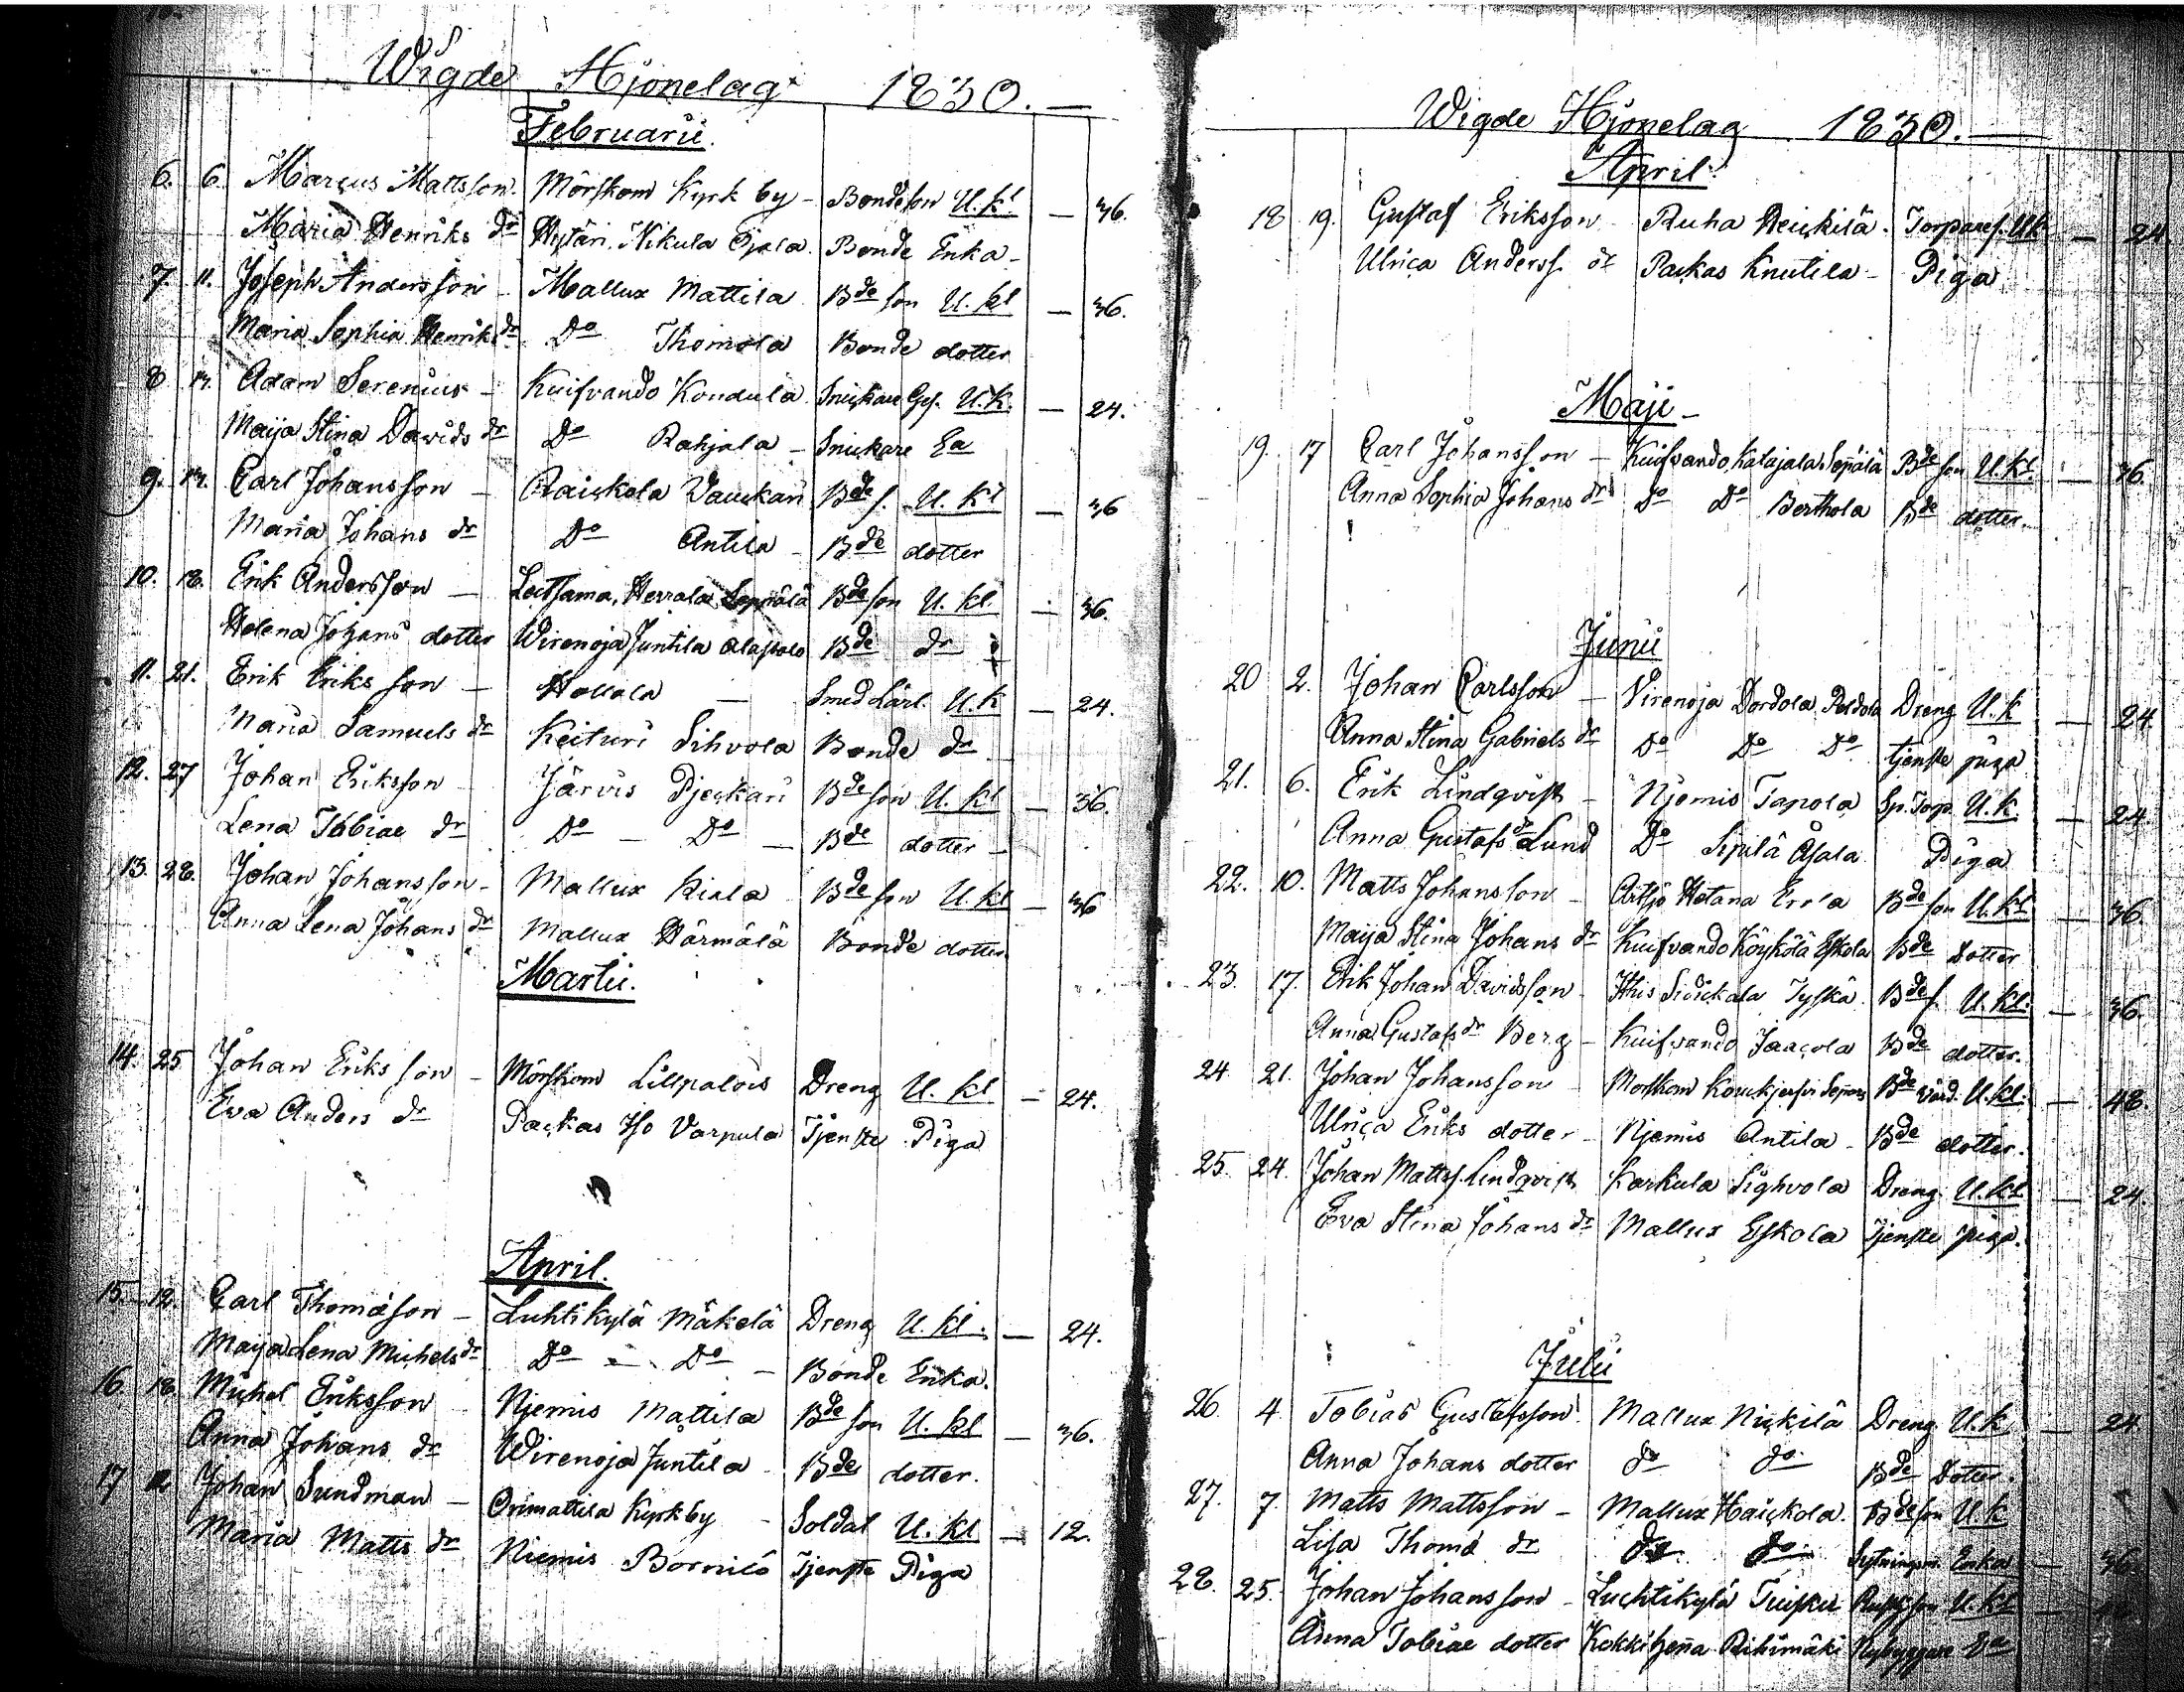 Wigde Hjonelag 1830. —
Februarii.
6. 6. Marcus Mattsson. Mörskom Kyrk by - Bondeson U. kl. — 36.
Maria Henriks dr Hytäri. Nikula Ojala. Bonde Enka -
7. 11. Joseph Andersson - Mallux Mattila Bde son U. kl — 36.
Maria Sophia Henriks dr Do Thomola Bonde dotter
8 Adam Serenius - Kuifvando Kondula. Snickare Ges. U. k. — 24.
Maija Stina Davids dr Do Rahjala - Snickare Ea
9. Carl Johansson - Raickola Vauckari Bde s. U. kl — 36
Maria Johans dr Do Antila - Bde dotter
10. 18. Erik Andersson — Leitsama, Herrala Seppälä Bde son U. kl. — 36.
Helena Johans dotter Wirenoja Juntila Bde dr
11. 21. Erik Eriksson — Hollola — Smed Lärl. U. k — 24.
Maria Samuels dr Keituri Sihvola Bonde dr
12. 27 Johan Eriksson Järvis Pjeckari Bde son U. kl — 36.
Lena Tobiae dr Do - Do — Bde dotter -
13. 28. Johan Johansson - Mallux Kiala Bde son U. kl — 36
Anna Lena Johans dr Mallux Härmälä Bonde dotter
Martii.
14. 25 Johan Eriksson - Mörskom Lillpalois Dreng U. kl — 24.
Eva Anders dr Packas Iso Varpula Tjenste Piga
April.
15. 12. Carl Thomasson - Luhtikylä Mäkelä Dreng U. kl. — 24.
Maja Lena Michels dr Do - Do - Bonde Enka.
16. 18. Michel Eriksson Njemis Mattila Bde son U. kl — 36.
Anna Johans dr Wirenoja Juntila - Bde dotter.
17 Johan Sundman - Orimattila Kyrkby - Soldat U. kl — 12.
Maria Matts dr Niemis Tjenste Piga
Wigde Hjonelag 1830. —
April.
18 19. Gustaf Eriksson Ruha Heickilä. Torpares. Uk — 24
Ulrica Anderss. dr Packas Knutila - Piga
Maji -
19. 17 Carl Johansson - Kuifvando, Katajala, Sepälä Bde son U. kl. — 36.
Anna Sophia Johans dr Do Do Berthola Bde dotter.
Junii
20 2. Johan Carlsson - Virenoja Dordola Dreng U. k — 24.
Anna Stina Gabriels dr Do Do Do tjenste piga
21. 6. Erik Lindqvist - Njemis Tapola Sp. Torp. U. k. — 24
Anna Gustafs dr Lund Do Sipilä Piga
22. 10. Matts Johansson - Artjö Hotana Bde son U. kl — 36.
Maija Stina Johans dr Kuifvando Köykölä Eskola Bde dotter
23. 17. Erik Johan Davidsson - Tyskä Bde s. U. kl. — 36.
Anna Gustafs dr Berg - Kuifvando Jaacola Bde dotter.
24. 21. Johan Johansson - Morskom Bde U. kl. — 48.
Ulrica Eriks dotter - Njemis Antila - Bde dotter.
25. 24. Johan Mattss. Lindqvist Karkula Sighvola Dreng U. kl — 24.
Eva Stina Johans dr Mallux Eskola Tjenste piga.
Julii
26. 4 Tobias Gustafsson. Mallux Nickilä Dreng U. k — 24.
Anna Johans dotter do do Bde Dotter.
27. 7. Matts Mattsson - Mallux Haickola. Bde son U. k
Lisa Thomæ dr do do Enka — 36.
28. 25. Johan Johansson - Luchtikylä U. kl —
Anna Tobiae dotter Rihimäki